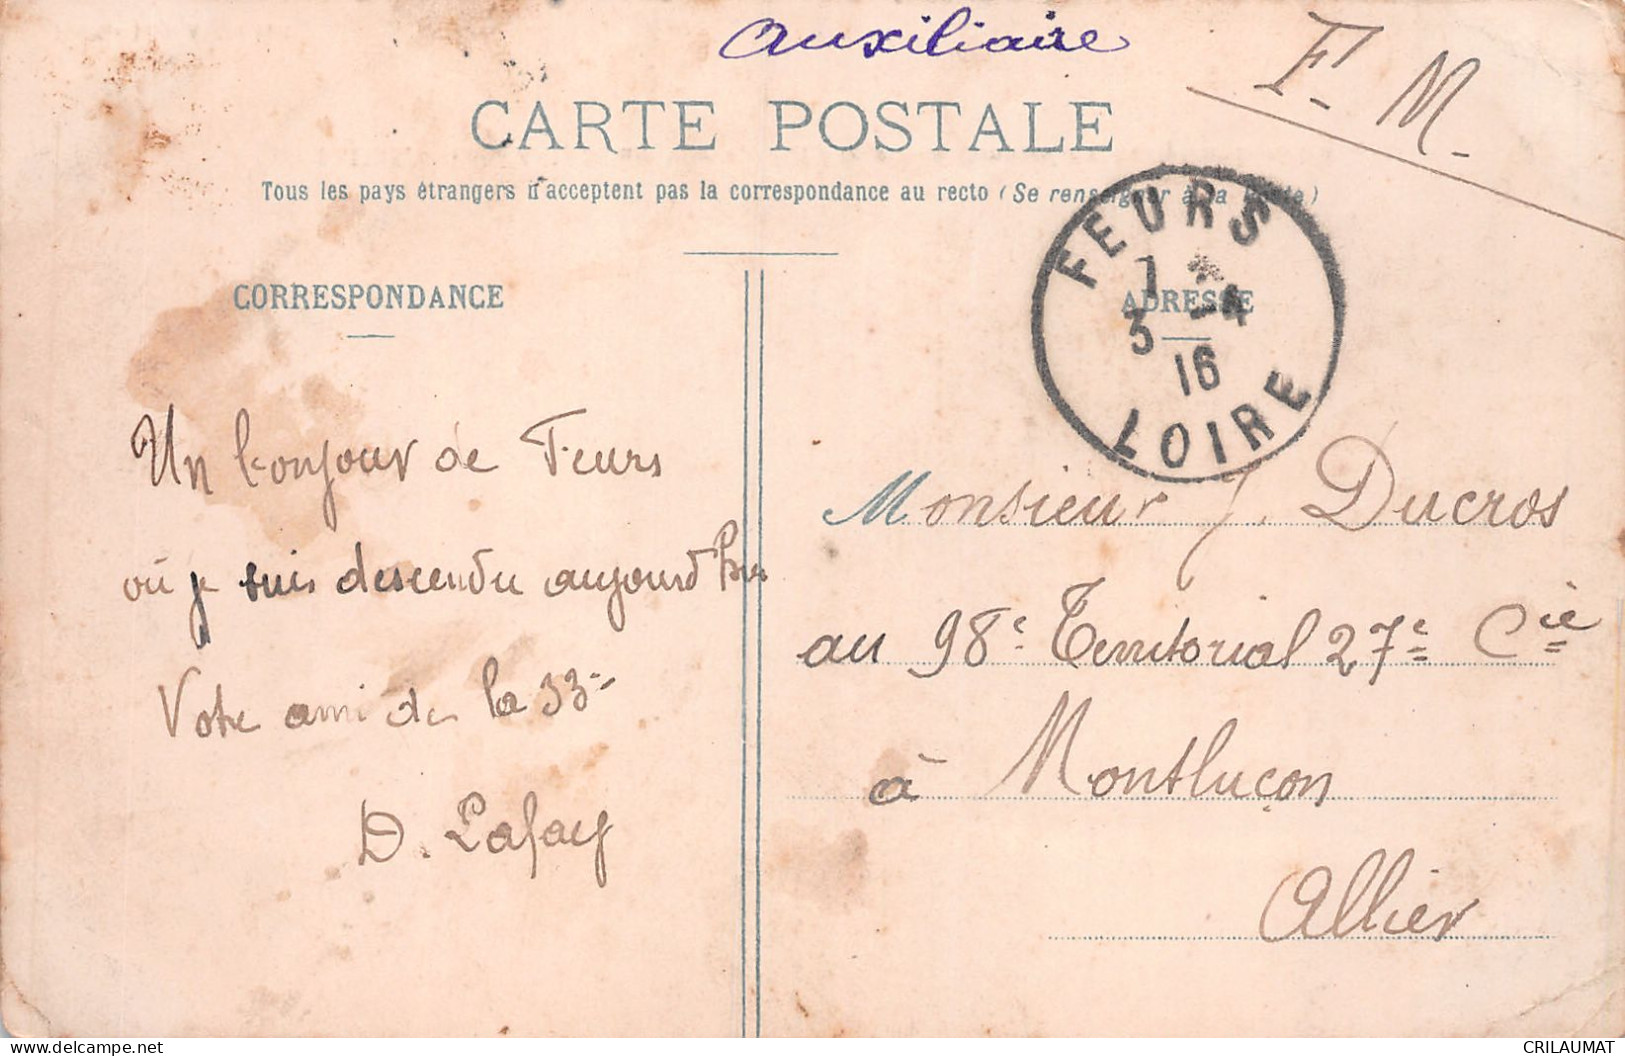 Auxiliaire
F. M.
CARTE POSTALE
Tous les pays étrangers n'acceptent pas la correspondance au recto (Se renseigner à la Poste)
FEURS
7
3 - 4
16
LOIRE
CORRESPONDANCE
Un bonjour de Feurs
où je suis descendu aujourd'hui
Votre ami de la 33e
D. Lafay
ADRESSE
Monsieur J. Ducros
au 98e Territorial 27e Cie
à Montluçon
Allier
CRILAUMAT